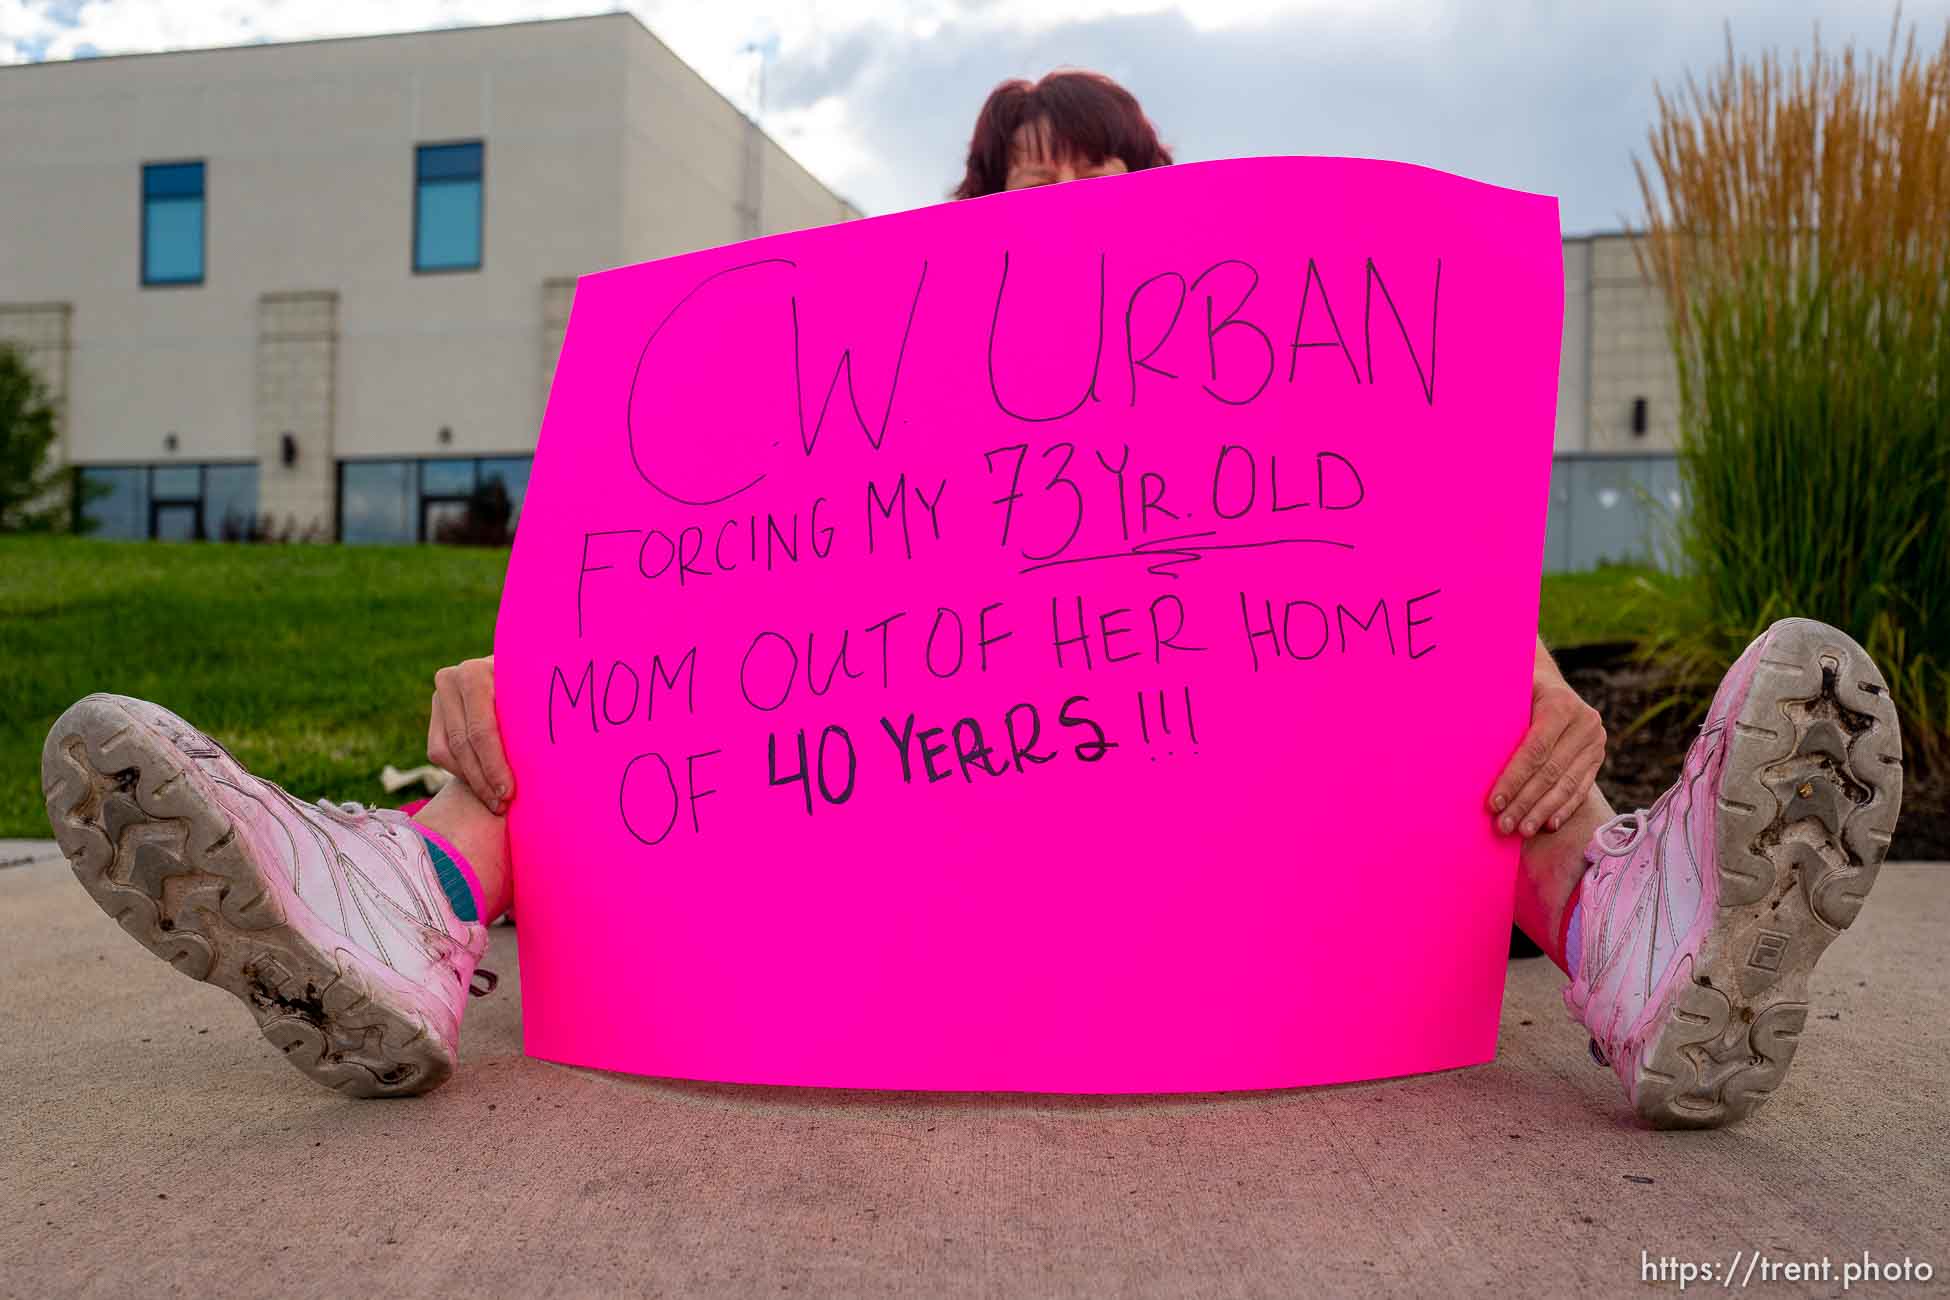 C.W. URBAN
FORCING MY 73 YR. OLD
MOM OUT OF HER HOME
OF 40 YEARS!!!
https://trent.photo